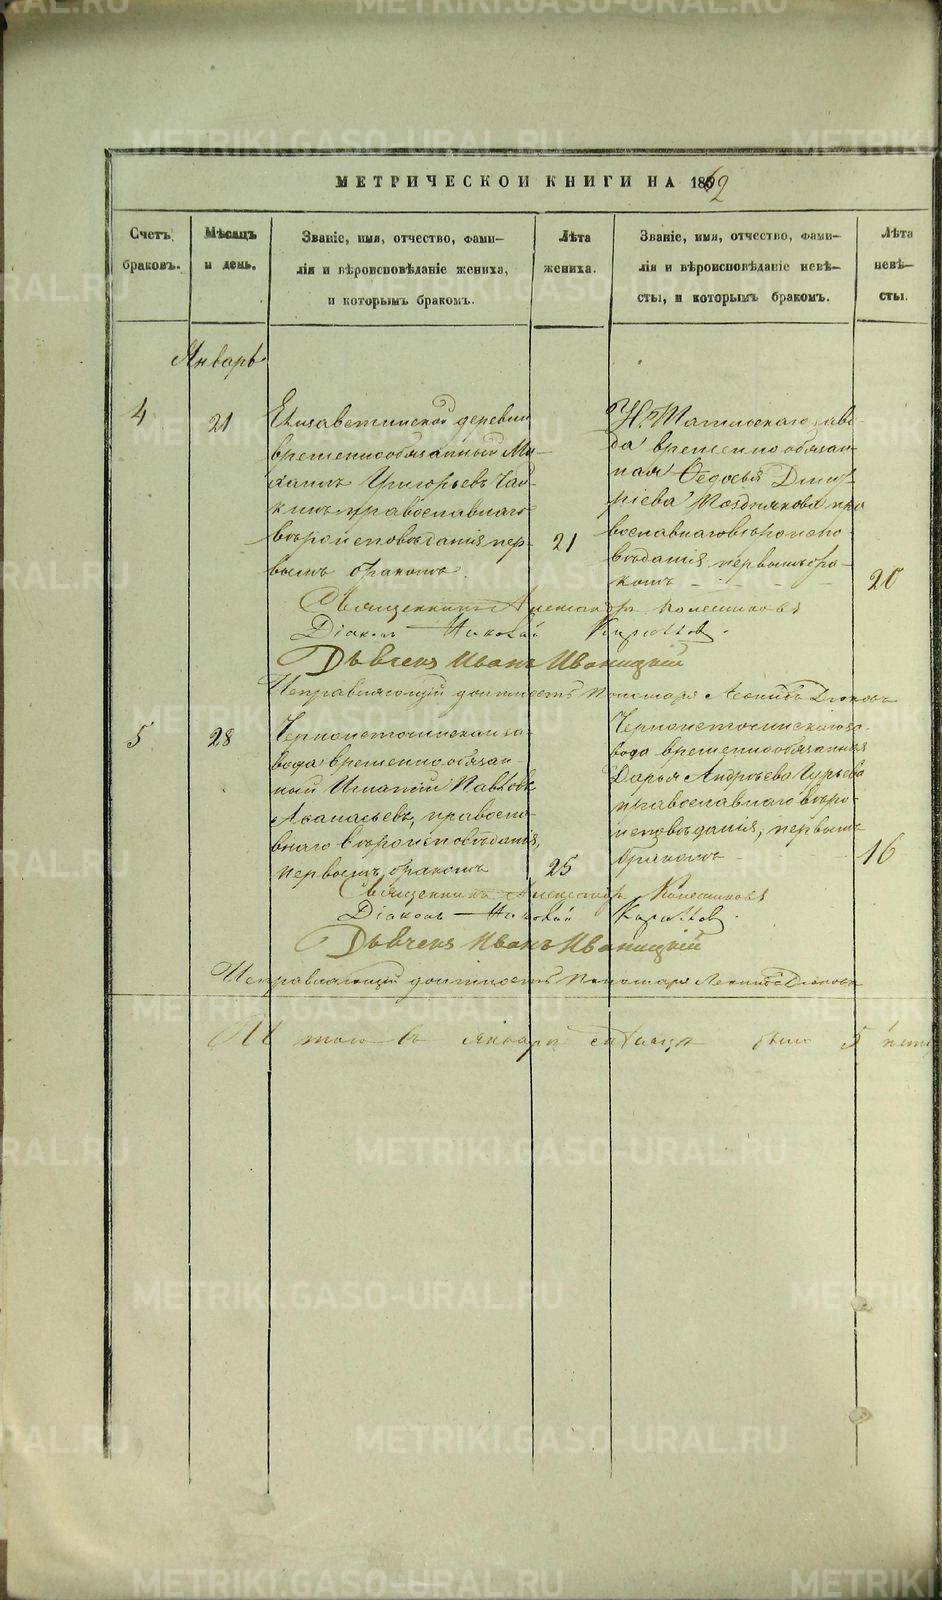 МЕТРИЧЕСКОЙ КНИГИ НА 1862
Счетъ браковъ.
Мѣсяцъ и день.
Званіе, имя, отчество, фами-
лія и вѣроисповѣданіе жениха,
и которымъ бракомъ.
Лѣта жениха.
Званіе, имя, отчество, фами-
лія и вѣроисповѣданіе невѣ-
сты, и которымъ бракомъ.
Лѣта невѣ-
сты.
Январь
4
21
Елизаветинской деревни
временнообязанный Ми-
хаилъ Григорьевъ
православнаго
вѣроисповѣданія, пер-
вымъ бракомъ.
21
Н. Тагильскаго заво-
да временнообязан-
ная Ѳедосья Димит-
ріева Позднякова пра-
вославнаго вѣроиспо-
вѣданія, первымъ бра-
комъ
20
Священникъ Александръ Колесниковъ
Діаконъ Николай
Дьячекъ Иванъ Иваницкій
Исправляющій должность Пономаря Леонидъ
5
28
Черноисточинскаго за-
вода временнообязан-
ный Игнатій Павловъ
Аѳанасьевъ, правосла-
внаго вѣроисповѣданія,
первымъ бракомъ
25
Черноисточинскаго за-
вода временнообязанная
Дарья Андреева Гурьева
православнаго вѣро-
исповѣданія, первымъ
бракомъ
16
Священникъ Александръ Колесниковъ
Діаконъ Николай
Дьячекъ Иванъ Иваницкій
Исправляющій должность Пономаря Леонидъ
Итого въ январѣ мѣсяцѣ было 5
METRIKI.GASO-URAL.RU